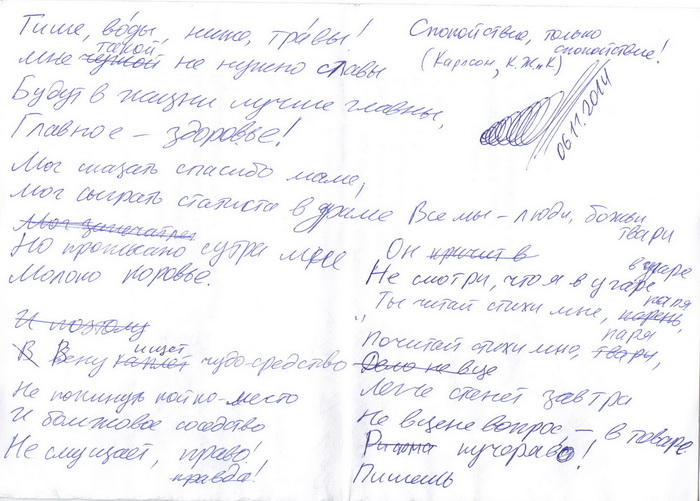 Тише, воды, ниже, травы!
такой
мне чужой не нужно славы
Будут в жизни лучше главы,
Главное – здоровье!
Мог сказать спасибо маме,
Мог сыграть статиста в драме
Мог запечатлел
Но прописано с утра мне
Молоко коровье.
И поэтому
ищет
В Вену каплет чудо-средство
Не покину койко-место
И больковое соседство
Не смущает, право!
правда!
Спокойствие, только
спокойствие!
(Карлсон, К.ЖнК)
06.11.2014
Все мы – люди, божьи
твари
Он кричит в
в ударе
Не смотри, что я в угаре
папя
"Ты читай стихи мне, парень,
паря
Почитай стихи мне, твари,
Дело не вце
Легче станет завтра
Не в цене вопрос – в товаре
Рифма кучеряво!
Пишешь